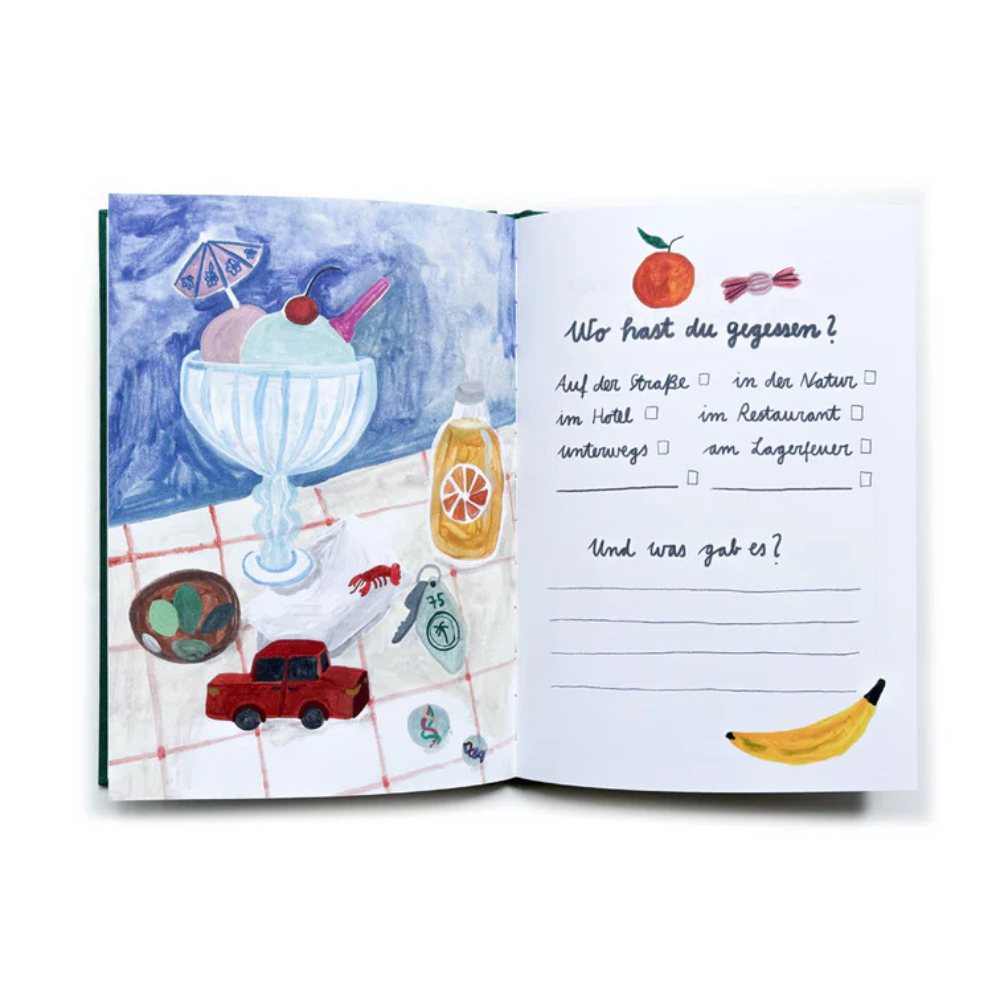 75
Wo hast du gegessen?
Auf der Straße in der Natur
im Hotel im Restaurant
unterwegs am Lagerfeuer
Und was gab es?